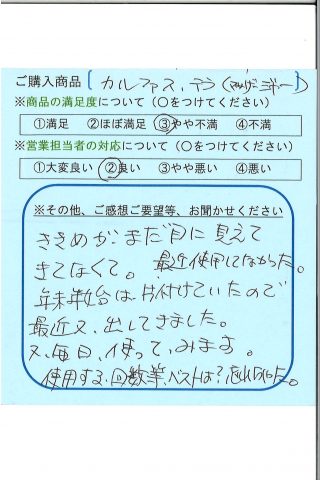 ご購入商品 [ カルファス、テラ( ]
※商品の満足度について(〇をつけてください)
①満足 ②ほぼ満足 ③やや不満 ④不満
※営業担当者の対応について(〇をつけてください)
①大変良い ②良い ③やや悪い ④悪い
※その他、ご感想ご要望等、お聞かせください
ききめが、まだ目に見えて
きてなくて。最近使用してなかった。
年末年始は、片付けていたので
最近又、出してきました。
又、毎日、使って、みます。
使用する、回数等、ベストは?忘れ